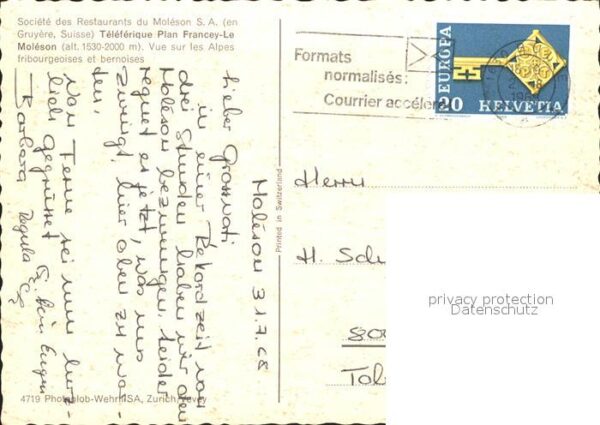 Société des Restaurants du Moléson S. A. (en
Gruyère, Suisse) Téléférique Plan Francey-Le
Moléson (alt. 1530-2000 m). Vue sur les Alpes
fribourgeoises et bernoises
Moléson 31.7.68
Lieber Grossvati
in einer Rekordzeit von
drei Stunden haben wir den
Moléson bezwungen. Leider
regnet es jetzt, was uns
zwingt, hier oben zu war-
ten.
Von Ferne sei nun herz-
lich gegrüsst
Barbara Regula
4719 Photoglob-Wehrli SA, Zurich, Vevey
Printed in Switzerland
Formats
normalisés:
Courrier accéléré
EUROPA
20 HELVETIA
Herrn
H.
privacy protection
Datenschutz